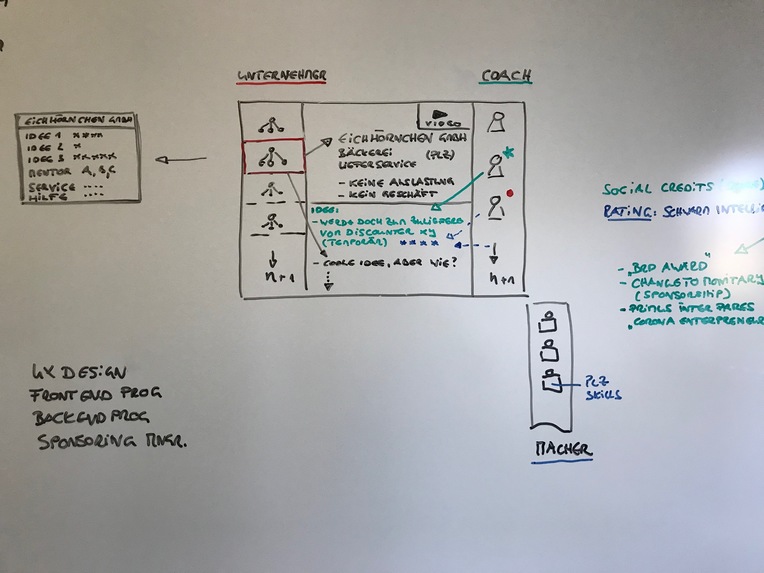 UNTERNEHMER
COACH
EICHHÖRNCHEN GMBH
IDEE 1 ****
IDEE 2 *
IDEE 3 *****
MENTOR A,B,C
SERVICE ....
HILFE ....
VIDEO
EICHHÖRNCHEN GMBH
BÄCKEREI (PLZ)
LIEFERSERVICE
- KEINE AUSLASTUNG
- KEIN GESCHÄFT
IDEE:
- WERDE DOCH ZUM ZULIEFERER
VON DISCOUNTER XY
(TEMPORÄR) ****
- COOLE IDEE, ABER WIE?
n+1
n+1
SOCIAL CREDITS
RATING: SCHWARM
- „BRD AWARD"
- CHANGE TO MONITARY
(SPONSORSHIP)
- PRIMUS INTER PARES
PLZ
SKILLS
MACHER
UX DESIGN
FRONTEND PROG
BACKEND PROG
SPONSORING MNGR.